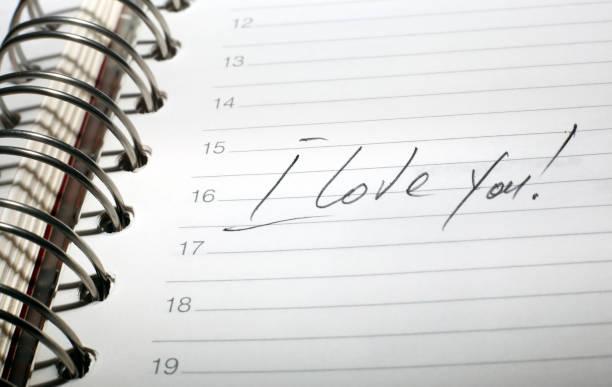 12
13
14
15
I love you!
16
17
18
19